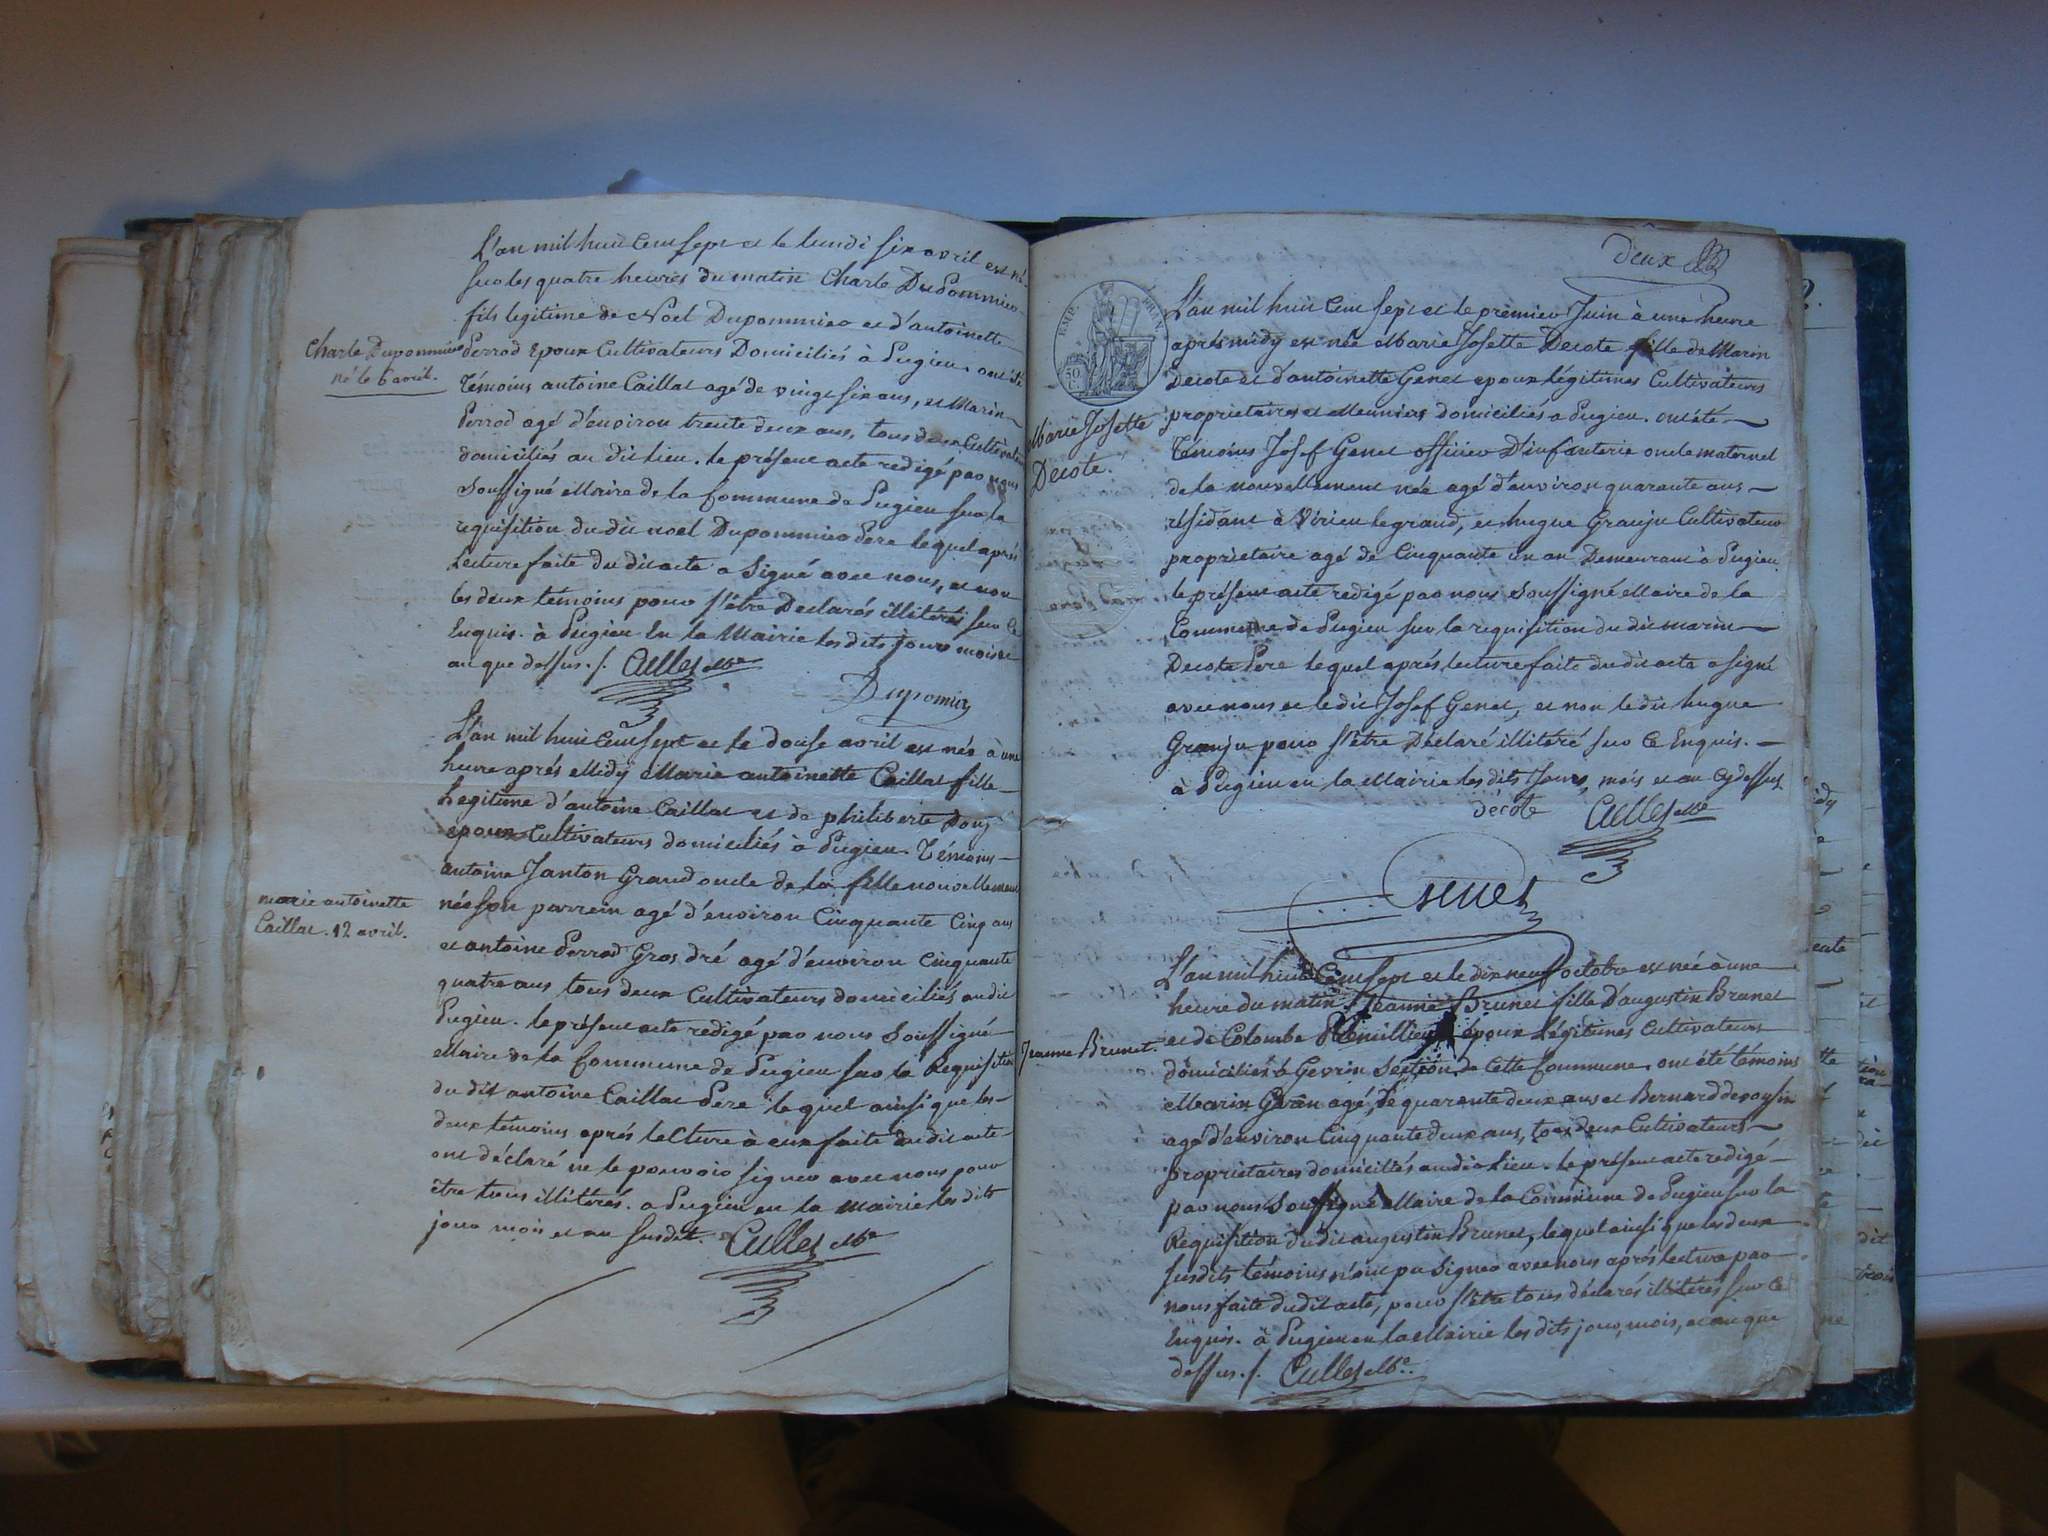 L'an mil huit Cent sept et le lundi six avril est né
sur les quatre heures du matin Charle Dupommier
fils legitime de Noël Dupommier et d'antoinette
Charle Dupommier
né le 6 avril.
Perrod Epoux Cultivateurs Domiciliés à Pugieu, ont été
Témoins antoine Caillat agé de vingt six ans, et Marin
Perrod agé d'environ trente deux ans, tous deux Cultivateurs
domiciliés au dit lieu. le présent acte redigé par nous
Soussigné Maire de la Commune de Pugieu sur la
requisition du dit noel Dupommier Pere lequel après
Lecture faite du dit acte a Signé avec nous, et non
les deux témoins pour s'être Declarés illitérés sur ce
Enquis. à Pugieu En la Mairie les dits jours mois et
an que dessus ./. Cullet Mre
Dupomier
L'an mil huit Cent sept et le douse avril est née à une
heure après Midy Marie antoinette Caillat fille
Legitime d'antoine Caillat et de philiberte
epoux Cultivateurs domiciliés à Pugieu. Témoins
antoine Janton Grand oncle de la fille nouvellement
née son parrein agé d'environ Cinquante Cinq ans
marie antoinette
Caillat. 12 avril.
et antoine Perrod Gros dré agé d'environ Cinquante
quatre ans tous deux Cultivateurs domiciliés audit
Pugieu. le présent acte redigé par nous Soussigné
Maire de la Commune de Pugieu sur la Requisition
du dit antoine Caillat Pere lequel ainsi que les
deux témoins après leCture à eux faite du dit acte
ont déclaré ne le pouvoir signer avec nous pour
être tous illitérés. a Pugieu en la Mairie les dits
jour mois et an susdit. Cullet Mre
deux
EMP. FRAN.
50
C.
L'an mil huit Cent Sept et le premier Juin à une heure
après midy est née Marie Josette Decote fille de Marin
Decote et d'antoinette Genet epoux légitimes Cultivateurs
proprietaires et Meuniers domiciliés a Pugieu. ont été
Marie Josette
Decote.
Témoins Josef Genet officier D'infanterie oncle maternel
de la nouvellement née agé d'environ quarante ans
résidant à Virieu le grand, et hugue Granju Cultivateur
proprietaire agé de Cinquante un an Demeurant à Pugieu
le présent acte redigé par nous Soussigné Maire de la
Commune de Pugieu sur la requisition du dit marin
Decote Pere lequel après lecture faite du dit acte a signé
avec nous et le dit Josef Genet, et non le dit hugue
Granju pour s'être Déclaré illitéré sur ce Enquis.
à Pugieu en la Mairie les dits Jours, mois et an cy dessus
décote Cullet Mre
Genet
L'an mil huit Cent sept et le dix neuf octobre est née à une
heure du matin Jeanne Brunet fille D'augustin Brunet
et de Colombe epoux Légitimes Cultivateurs
Jeanne Brunet.
domiciliés à Gevrin Section de Cette Commune, ont été témoins
Marin agé de quarante deux ans et Bernard
agé d'environ Cinquante deux ans, tous deux Cultivateurs
propriétaires domiciliés au dit Lieu. le présent acte redigé
par nous Soussigné Maire de la Commune de Pugieu sur la
Requisition du dit augustin Brunet, lequel ainsi que les deux
susdits témoins n'ont pu Signer avec nous après lecture par
nous faite du dit acte, pour s'être tous déclarés illitérés sur ce
Enquis. à Pugieu en la Mairie les dits jour, mois, et an que
dessus ./. Cullet Mre